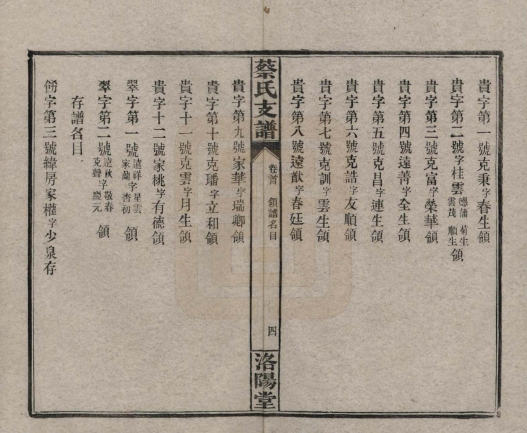 貴字第一號克東字春生領
貴字第二號字桂雲 應蒲 菊生 雲茂 順生 領
貴字第三號克富字榮華領
貴字第四號遠菁字全生領
貴字第五號克昌字連生領
貴字第六號克誥字友順領
貴字第七號克訓字雲生領
貴字第八號遠猷字春廷領
蔡氏支譜
卷首 領譜名目
四
洛陽堂
貴字第九號家華字瑞卿領
貴字第十號克璠字立和領
貴字十一號克雲字月生領
貴字十二號家桃字有德領
翠字第一號 遠祥字星雲 家蘭字杏初 領
翠字第二號 遠秋字啟春 克聲字慶元 領
存譜名目
俻字第三號緯房家權字少泉存